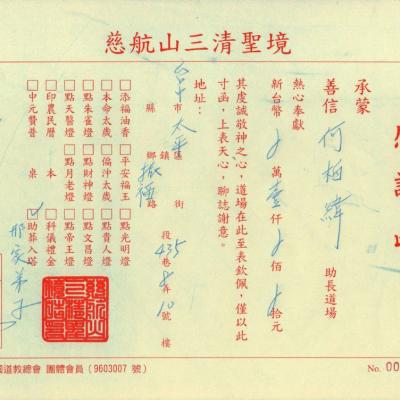 慈航山三清聖境
感謝
承蒙
善信 何栢緯 助長道場
熱心奉獻
新台幣 萬壹仟 佰 拾元
其虔誠敬神之心,道場在此至表欽佩,僅以此
寸函,上表天心,聊誌謝意。
地址:
台中市太平區 街
縣 鄉鎮 路 段435巷 弄10號 樓
□添福油香 □平安福玉 □點光明燈
□本命太歲 □偏沖太歲 □點貴人燈
□點朱雀燈 □點財神燈 □點文昌燈
□點天醫燈 □點月老燈 □點帝王燈
□印農民曆 本 □科儀禮金
□中元贊普 桌 □助葬入塔
國道教總會 團體會員(9603007 號)
No. 00